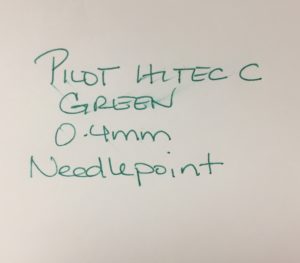 PILOT HITEC C
GREEN
0.4mm
Needlepoint